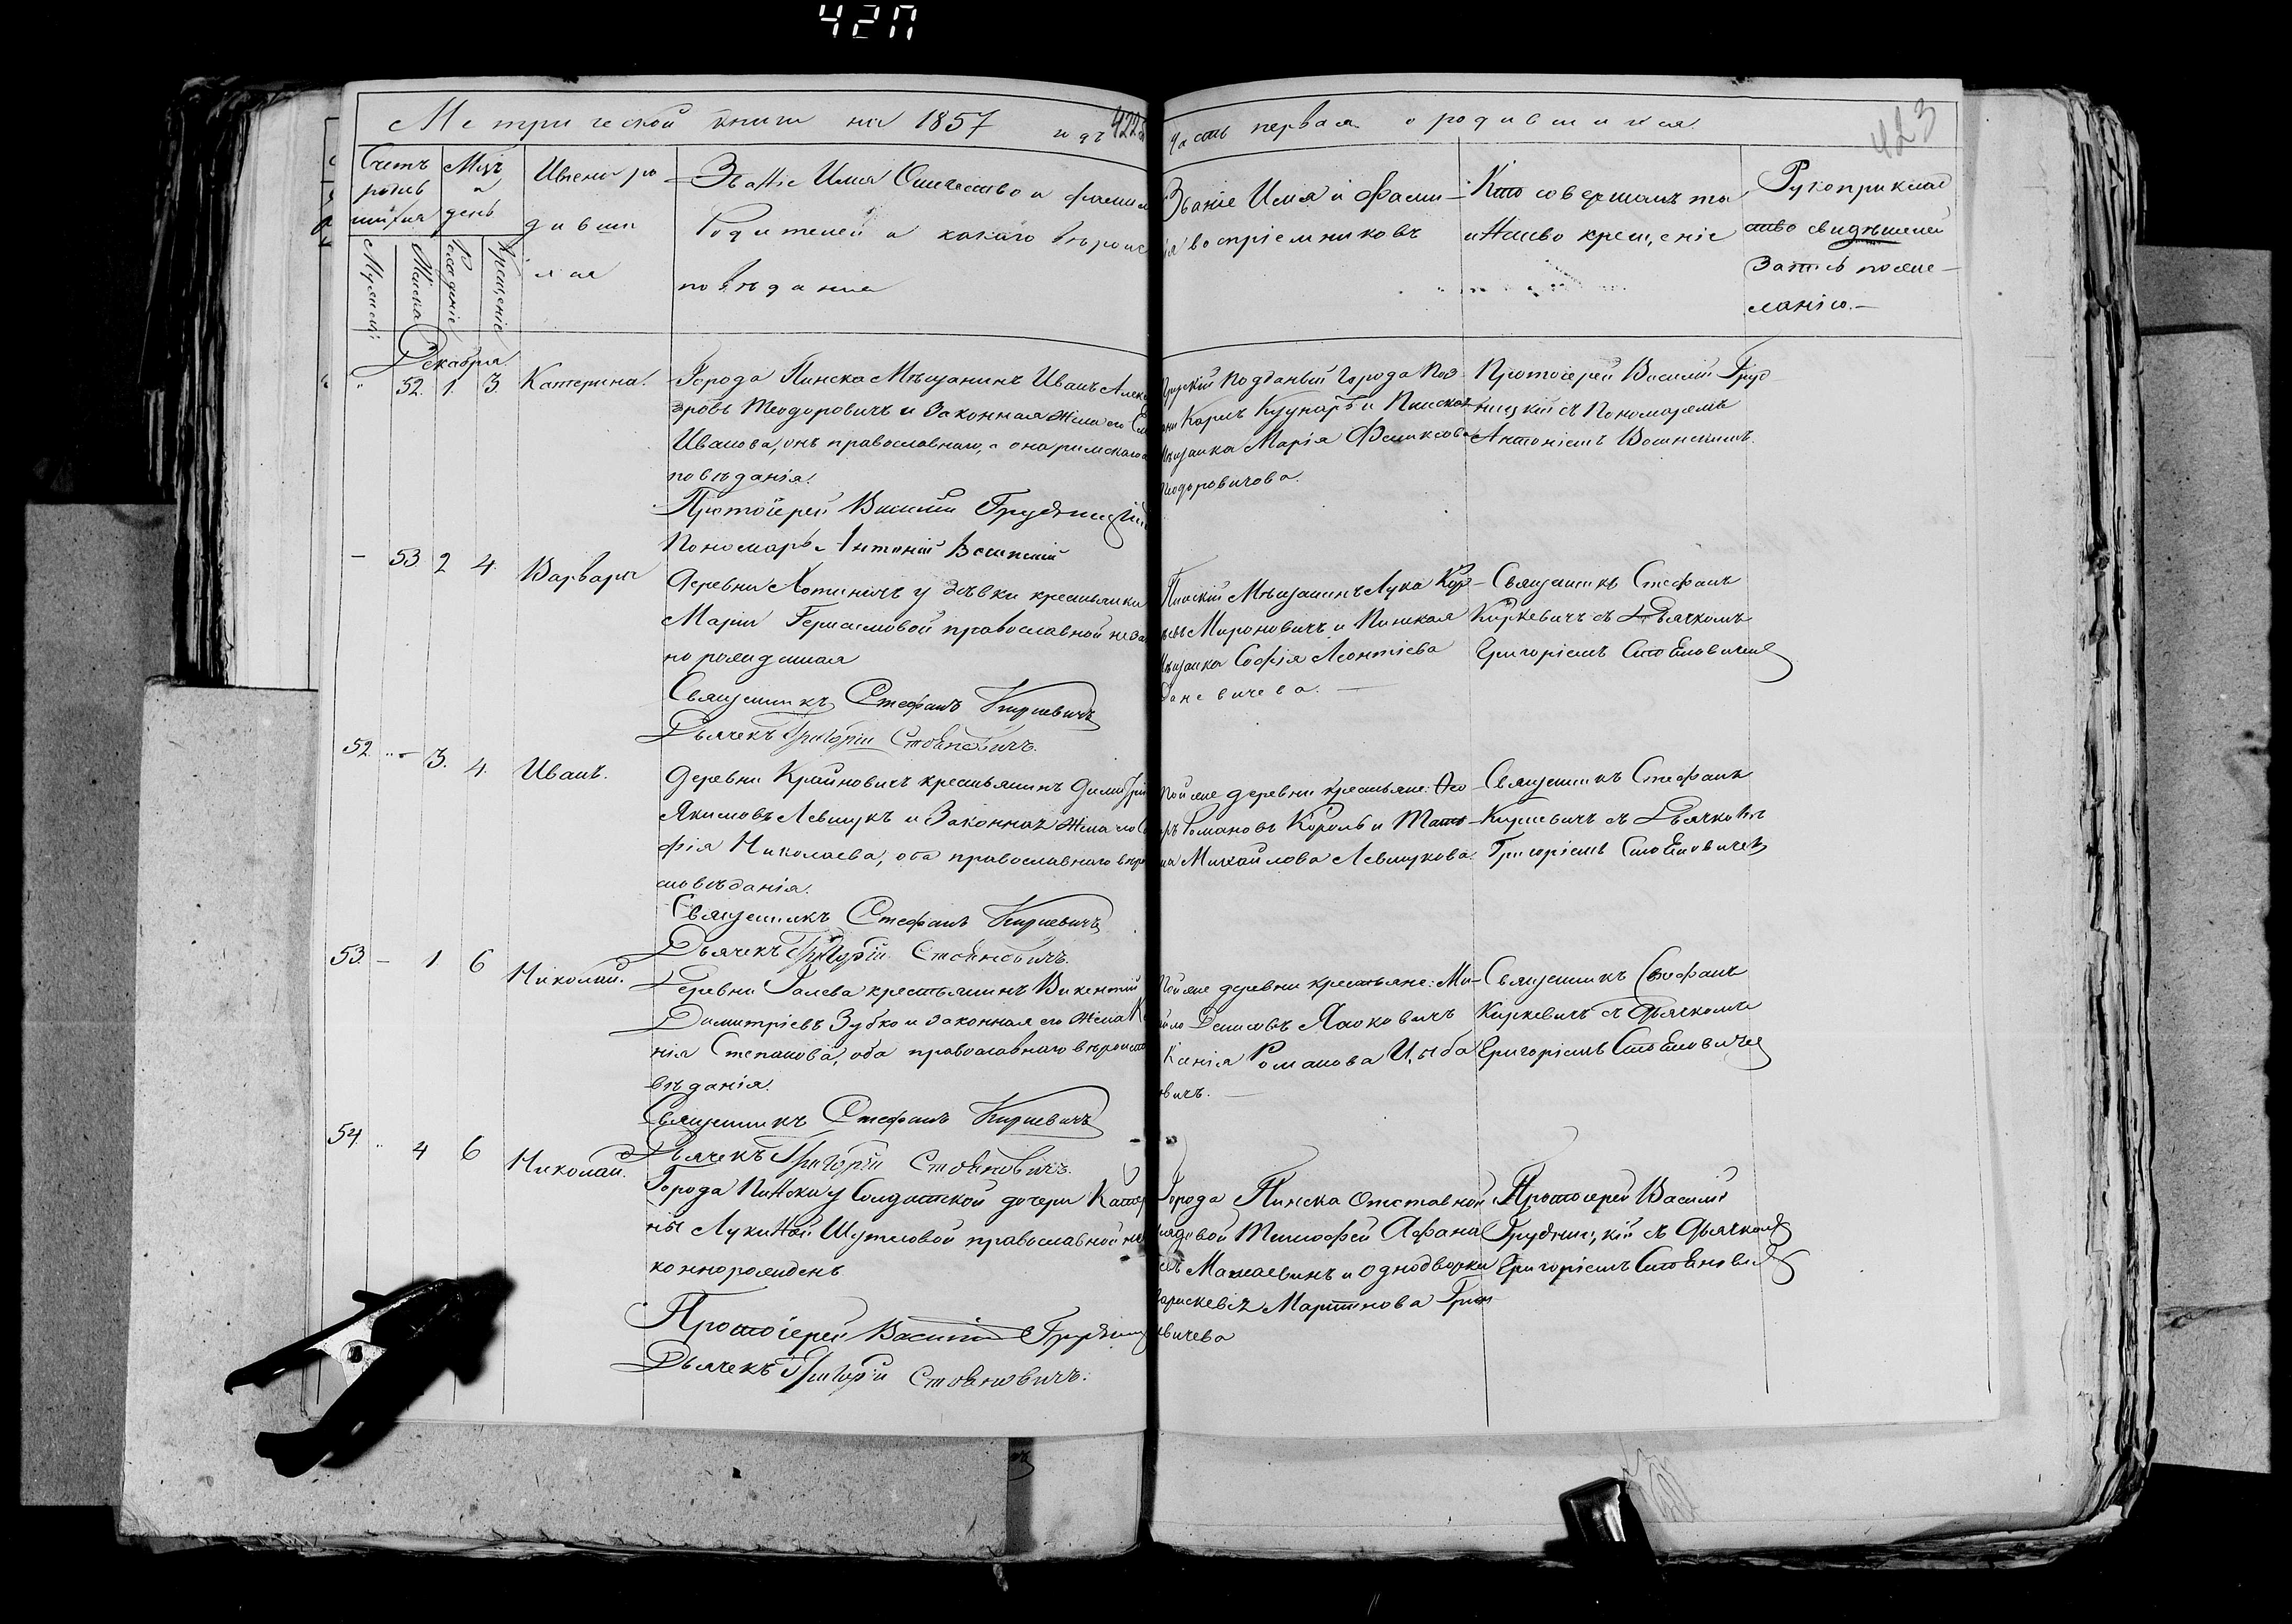 42П
Метрической книги на 1857 годъ
422
Часть первая о родившихся.
423
Счетъ родив шихся
Муж
Женска
Мѣц а день
Рожденіе
Крещеніе
Имена ро дивши хся
Званіе Имя Отчество и фамил
Родителей и какого вѣроис
повѣданія
Званіе Имя и Фами-
ія воспріемниковъ
Кто совершалъ та
инство крещеніе
Рукоприклад
ство свидѣтелей
Запись по же-
ланію.-
Декабря
" 52. 1. 3. Катерина.
Города Пинска Мѣщанинъ Иванъ Алекс
ровъ Теодоровичъ и Законная Жена его
Иванова, онъ православнаго, а она римскаго
повѣданія.
Протоіерей Василій Грудницкій
Пономарь Антоній Волинскій
подданый Города
Карлъ и Пинская
ѣщанка Марія Феликсова
еодоровичова.
Протоіерей Василій Груд
ницкій съ Пономаремъ
Антоніемъ Волинскимъ.
- 53 2 4. Варвара
Деревни Хотиничъ у дѣвки крестьянки
Маріи Герасимовой православной неза
но рожденная
Священникъ Стефанъ Киркевичъ
Дьячекъ Григорій Стояновичъ.
Пинскій Мѣщанинъ Лука
Мироновичъ и Пинская
ѣщанка Софія Леонтіева
аневичева. -
Священникъ Стефанъ
Киркевичъ съ Дьячкомъ
Григоріемъ Стояновичемъ
52. " - 3. 4. Иванъ.
Деревни Крайновичъ крестьянинъ Димитрій
Якимовъ Левчукъ и Законная Жена его Со
фія Николаева, оба православнаго вѣро
исповѣданія.
Священникъ Стефанъ Киркевичъ
Дьячекъ Григорій Стояновичъ.
Той же деревни крестьяне: Ѳео
ръ Романовъ Король и Тать
на Михайлова Левчукова.
Священникъ Стефанъ
Киркевичъ съ Дьячкомъ
Григоріемъ Стояновичемъ
53. - 1 6 Николай.
Деревни Галева крестьянинъ Викентій
Димитріевъ Зубко и законная его жена К
нія Степанова, оба православнаго вѣроиспо
вѣданія.
Священникъ Стефанъ Киркевичъ
Дьячекъ Григорій Стояновичъ.
Той же деревни крестьяне: Ми-
айло Денисовъ Яцковичъ
Ксенія Романова Цыба
овичъ. -
Священникъ Стефанъ
Киркевичъ съ Дьячкомъ
Григоріемъ Стояновичемъ
54. " 4 6 Николай.
Города Пинска у Солдатской дочери Катер
ны Лукиной Шутковой православной неза
коннорожденъ
Протоіерей Василій Грудниц
Дьячекъ Григорій Стояновичъ.
Города Пинска Отставной
рядовой Тимофей Афана
евъ и однодворка
Мартинова
вичева
Протоіерей Василій
Грудницкій съ Дьячкомъ
Григоріемъ Стояновичемъ